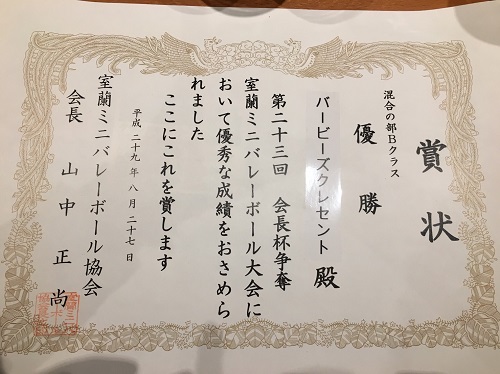 賞状
混合の部Bクラス
優勝
バービーズクレセント殿
第二十三回 会長杯争奪
室蘭ミニバレーボール大会に
おいて優秀な成績をおさめら
れました
ここにこれを賞します
平成二十九年八月二十七日
室蘭ミニバレーボール協会
会長 山中正尚